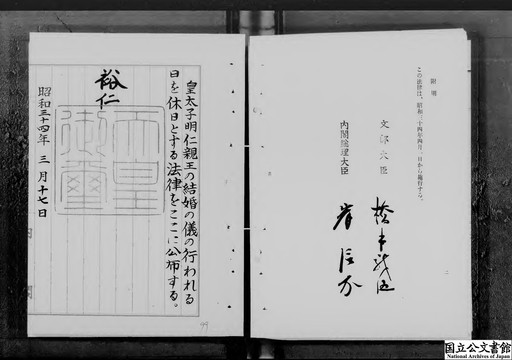 附則
この法律は、昭和三十四年四月一日から施行する。
文部大臣 橋本龍伍
内閣総理大臣 岸信介
二
皇太子明仁親王の結婚の儀の行われる
日を休日とする法律をここに公布する。
裕仁
天皇御璽
昭和三十四年三月十七日
国立公文書館
National Archives of Japan